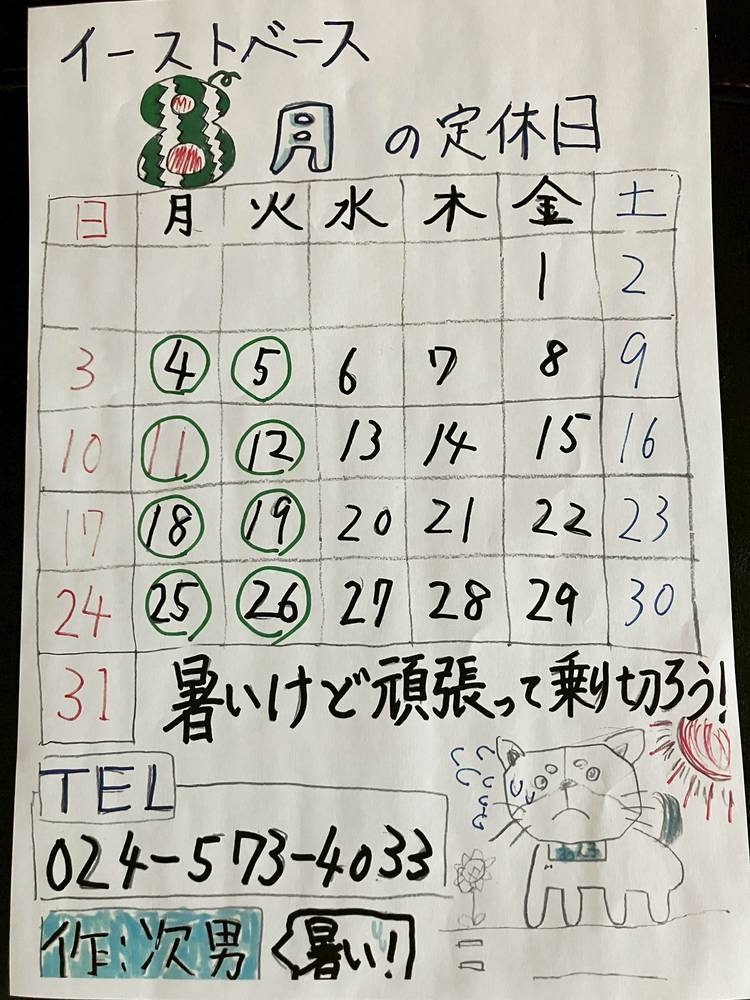 イーストベース
8月の定休日
日 月 火 水 木 金 土
1 2
3 4 5 6 7 8 9
10 11 12 13 14 15 16
17 18 19 20 21 22 23
24 25 26 27 28 29 30
31
暑いけど頑張って乗り切ろう!
TEL
024-573-4033
作:次男
暑い!